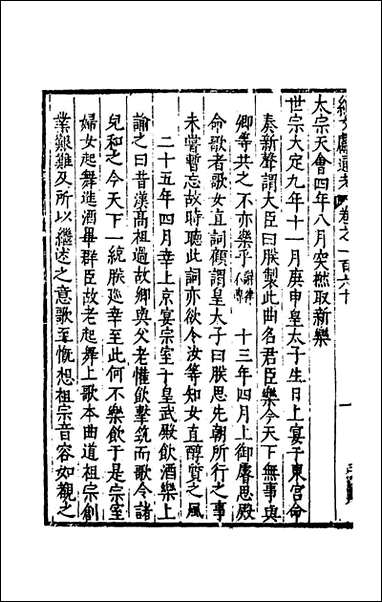 續文獻通考 卷之一百六十
太宗天會四年八月突撚取新樂
世宗大定九年十一月庚申皇太子生日上宴于東宮命
奏新聲謂大臣曰朕製此曲名君臣樂今天下無事與
卿等共之不亦樂乎
十三年四月上御睿思殿
命歌者歌女直詞顧謂皇太子曰朕思先朝所行之事
未嘗暫忘故時聽此詞亦欲令汝等知女直醇質之風
二十五年四月幸上京宴宗室于皇武殿飲酒樂上
諭之曰昔漢高祖過故鄉與父老懽飲擊筑而歌令諸
兒和之今天下一統朕廵幸至此何不樂飲于是宗室
婦女起舞進酒畢群臣故老起舞上歌本曲道祖宗創
業艱難及所以繼述之意歌至慨想祖宗音容如覩之